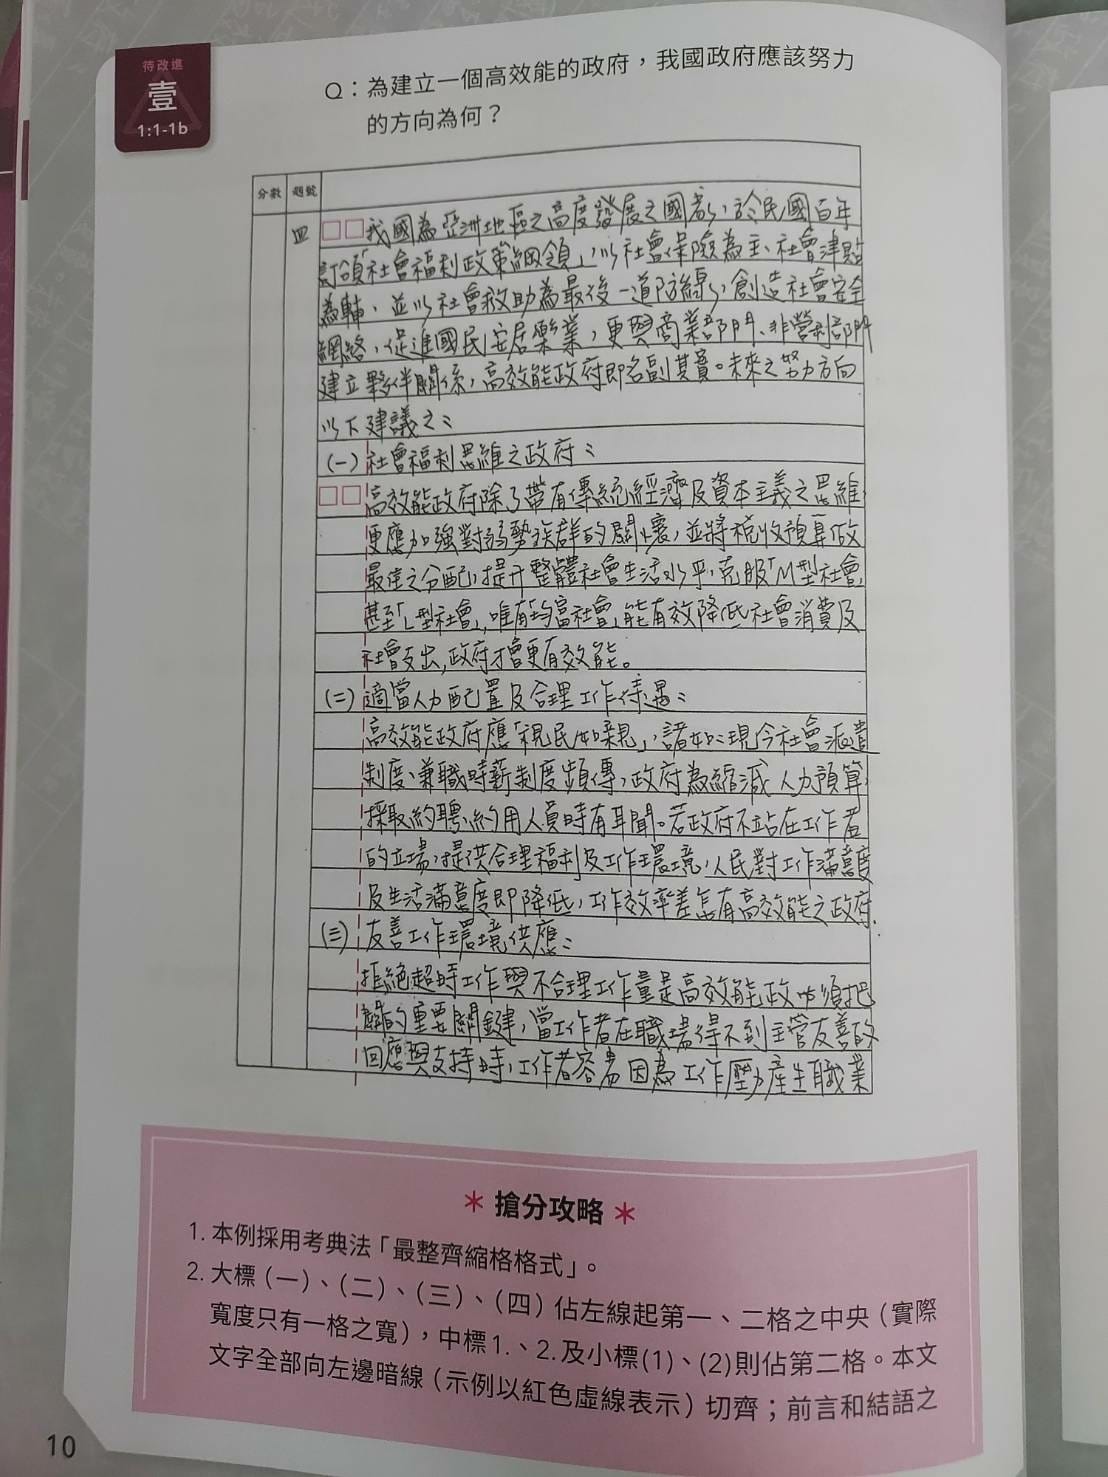 待改進
壹
1:1-1b
Q：為建立一個高效能的政府，我國政府應該努力
的方向為何？
分數 題號
四 我國為亞洲地區之高度發展之國家，於民國百年
訂頒「社會福利政策綱領」，以社會保險為主、社會津貼
為輔、並以社會救助為最後一道防線，創造社會安全
網絡，促進國民安居樂業，更與商業部門、非營利部門
建立夥伴關係，高效能政府即名副其實。未來之努力方向
以下建議之：
(一) 社會福利思維之政府：
高效能政府除了帶有傳統經濟及資本主義之思維
更應加強對弱勢族群的關懷，並將稅收預算做
最佳之分配，提升整體社會生活水平，克服「M型社會」
甚至「L型社會」，唯有均富社會，能有效降低社會消費及
社會支出，政府才會更有效能。
(二) 適當人力配置及合理工作待遇：
高效能政府應「視民如親」，諸如：現今社會派遣
制度、兼職時薪制度頻傳，政府為縮減人力預算
採取約聘、約用人員時有耳聞。若政府不站在工作者
的立場，提供合理福利及工作環境，人民對工作滿意度
及生活滿意度即降低，工作效率差怎有高效能之政府．
(三) 友善工作環境供應：
拒絕超時工作與不合理工作量是高效能政府須把
的重要關鍵，當工作者在職場得不到主管友善的
回應與支持時，工作者容易因為工作壓力產生職業
＊ 搶分攻略 ＊
1. 本例採用考典法「最整齊縮格格式」。
2. 大標 (一)、(二)、(三)、(四) 佔左線起第一、二格之中央（實際
寬度只有一格之寬），中標1.、2.及小標(1)、(2)則佔第二格。本文
文字全部向左邊暗線（示例以紅色虛線表示）切齊；前言和結語之
10